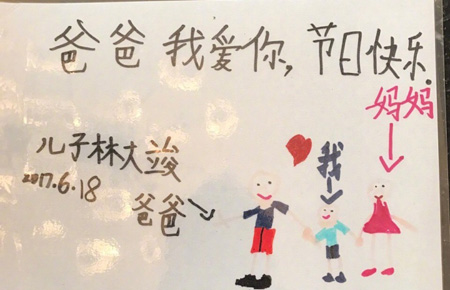 爸爸 我爱你，节日快乐.
妈妈
我
儿子林大竣
2017.6.18
爸爸